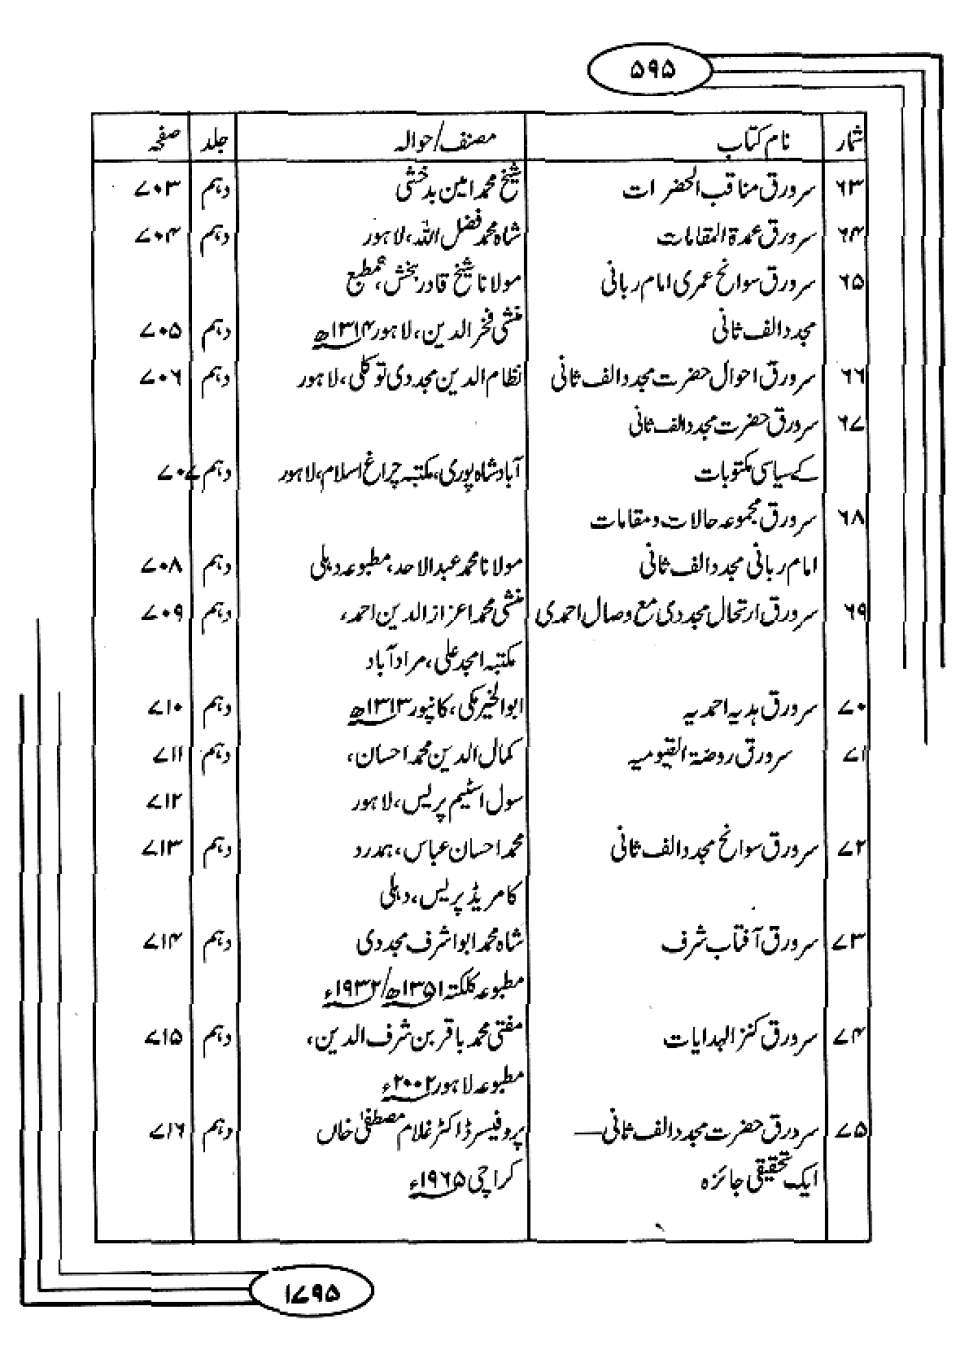 ۵۹۵
شمار نام کتاب مصنف/حوالہ جلد صفحہ
۶۳ سرورق مناقب الحضرات شیخ محمد امین بدخشی دہم ۷۰۳
۶۴ سرورق عمدۃ المقامات شاہ محمد فضل اللہ، لاہور دہم ۷۰۴
۶۵ سرورق سوانح عمری امام ربانی مولانا شیخ قادر بخش، مطبع
مجدد الف ثانی منشی فخر الدین، لاہور ۱۳۱۴ھ دہم ۷۰۵
۶۶ سرورق احوال حضرت مجدد الف ثانی نظام الدین مجددی توکلی، لاہور دہم ۷۰۶
۶۷ سرورق حضرت مجدد الف ثانی
کے سیاسی مکتوبات آباد شاہ پوری، مکتبہ چراغ اسلام، لاہور دہم ۷۰۷
۶۸ سرورق مجموعہ حالات و مقامات
امام ربانی مجدد الف ثانی مولانا محمد عبدالاحد، مطبوعہ دہلی دہم ۷۰۸
۶۹ سرورق ارتحال مجددی مع وصال احمدی منشی محمد اعزاز الدین احمد، دہم ۷۰۹
مکتبہ امجد علی، مراد آباد
۷۰ سرورق ہدیہ احمدیہ ابوالخیر مکی، کانپور ۱۳۱۳ھ دہم ۷۱۰
۷۱ سرورق روضۃ القیومیہ کمال الدین محمد احسان، دہم ۷۱۱
سول اسٹیم پریس، لاہور ۷۱۲
۷۲ سرورق سوانح مجدد الف ثانی محمد احسان عباس، ہمدرد دہم ۷۱۳
کامریڈ پریس، دہلی
۷۳ سرورق آفتاب شرف شاہ محمد ابو اشرف مجددی دہم ۷۱۴
مطبوعہ کلکتہ ۱۳۵۱ھ/۱۹۳۲ء
۷۴ سرورق کنز الہدایات مفتی محمد باقر بن شرف الدین، دہم ۷۱۵
مطبوعہ لاہور ۲۰۰۲ء
۷۵ سرورق حضرت مجدد الف ثانی— پروفیسر ڈاکٹر غلام مصطفیٰ خاں دہم ۷۱۶
ایک تحقیقی جائزہ کراچی ۱۹۶۵ء
۱۷۹۵